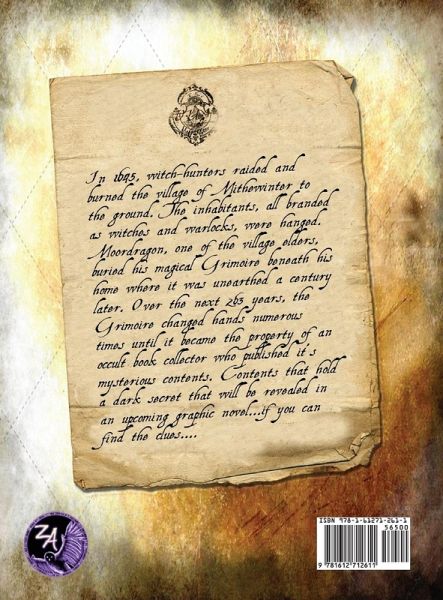 In 1645, witch-hunters raided and
burned the village of Mithewinter to
the ground. The inhabitants, all branded
as witches and warlocks, were hanged.
Moordragon, one of the village elders,
buried his magical Grimoire beneath his
home where it was unearthed a century
later. Over the next 263 years, the
Grimoire changed hands numerous
times until it became the property of an
occult book collector who published it's
mysterious contents. Contents that hold
a dark secret that will be revealed in
an upcoming graphic novel...if you can
find the clues....
ZA
ISBN 978-1-61271-261-1
56500
9 781612 712611